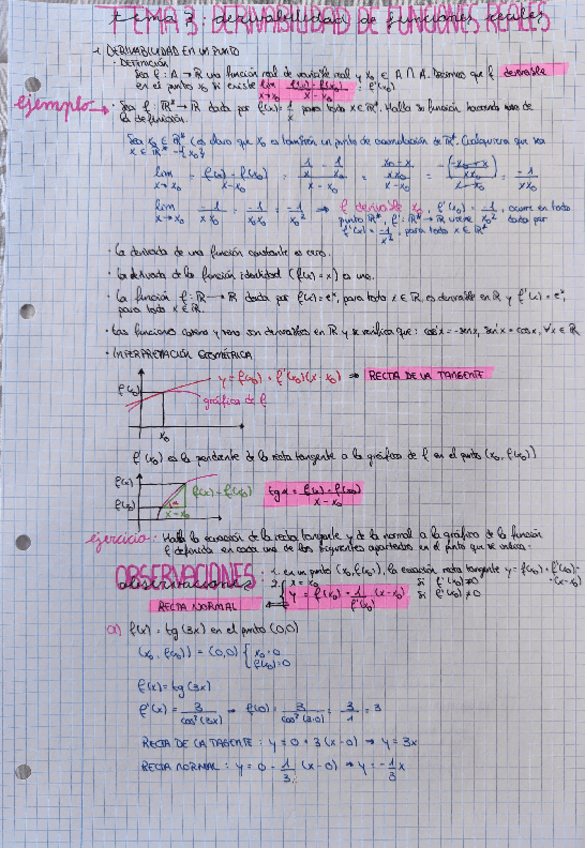 TEMA 3: DERIVABILIDAD DE FUNCIONES REALES
DERIVABILIDAD EN UN PUNTO
· DEFINICIÓN
Sea f: A → R una función real de variable real y x₀ ∈ A ∩ A'. Decimos que f derivable
en el punto x₀ si existe lim x→x₀ (f(x) - f(x₀))/(x - x₀) = f'(x₀)
ejemplo
· Sea f: R* → R dada por f(x) = 1/x para todo x ∈ R*. Halla su función haciendo uso de
la definición.
Sea x₀ ∈ R* (es claro que x₀ es también un punto de acumulación de R*. Cualquiera que sea
x ∈ R* - {x₀}
lim x→x₀ = (f(x) - f(x₀))/(x - x₀) = (1/x - 1/x₀)/(x - x₀) = ((x₀ - x)/(xx₀))/(x - x₀) = (-(-x₀+x)/(xx₀))/(x - x₀) = -1/(xx₀)
lim x→x₀ -1/(xx₀) = -1/(x₀x₀) = -1/x₀² ⇒ f derivable x₀, f'(x₀) = -1/x₀², ocurre en todo
punto R*, f': R* → R viene dada por
f'(x) = -1/x², para todo x ∈ R*
· La derivada de una función constante es cero.
· La derivada de la función identidad (f(x) = x) es uno.
· La función f: R → R dada por f(x) = eˣ, para todo x ∈ R, es derivable en R y f'(x) = eˣ,
para todo x ∈ R.
· Las funciones coseno y seno son derivables en R y se verifica que: cos'x = -senx, sen'x = cosx, ∀x ∈ R
· INTERPRETACIÓN GEOMÉTRICA
y = f(x₀) + f'(x₀)(x - x₀) ⇒ RECTA DE LA TANGENTE
f(x₀)
gráfica de f
x₀
f'(x₀) es la pendiente de la recta tangente a la gráfica de f en el punto (x₀, f(x₀))
f(x)
f(x) - f(x₀)
tgα = (f(x) - f(x₀))/(x - x₀)
f(x₀)
x - x₀
ejercicio: Halla la ecuación de la recta tangente y de la normal a la gráfica de la función
f definida en cada uno de los siguientes apartados en el punto que se indica:
OBSERVACIONES
observaciones
· 1. en un punto (x₀, f(x₀)), la ecuación recta tangente y = f(x₀) + f'(x₀)·
·(x - x₀)
2. { x = x₀ si f'(x₀) = 0
RECTA NORMAL ⇐ y = f(x₀) - 1/f'(x₀) (x - x₀) si f'(x₀) ≠ 0
a) f(x) = tg(3x) en el punto (0,0)
(x₀, f(x₀)) = (0,0) { x₀ = 0
f(x₀) = 0
f(x) = tg(3x)
f'(x) = 3/cos²(3x) → f(0) = 3/cos²(3·0) = 3/1 = 3
RECTA DE LA TAGENTE: y = 0 + 3(x - 0) → y = 3x
RECTA NORMAL: y = 0 - 1/3 (x - 0) → y = -1/3 x